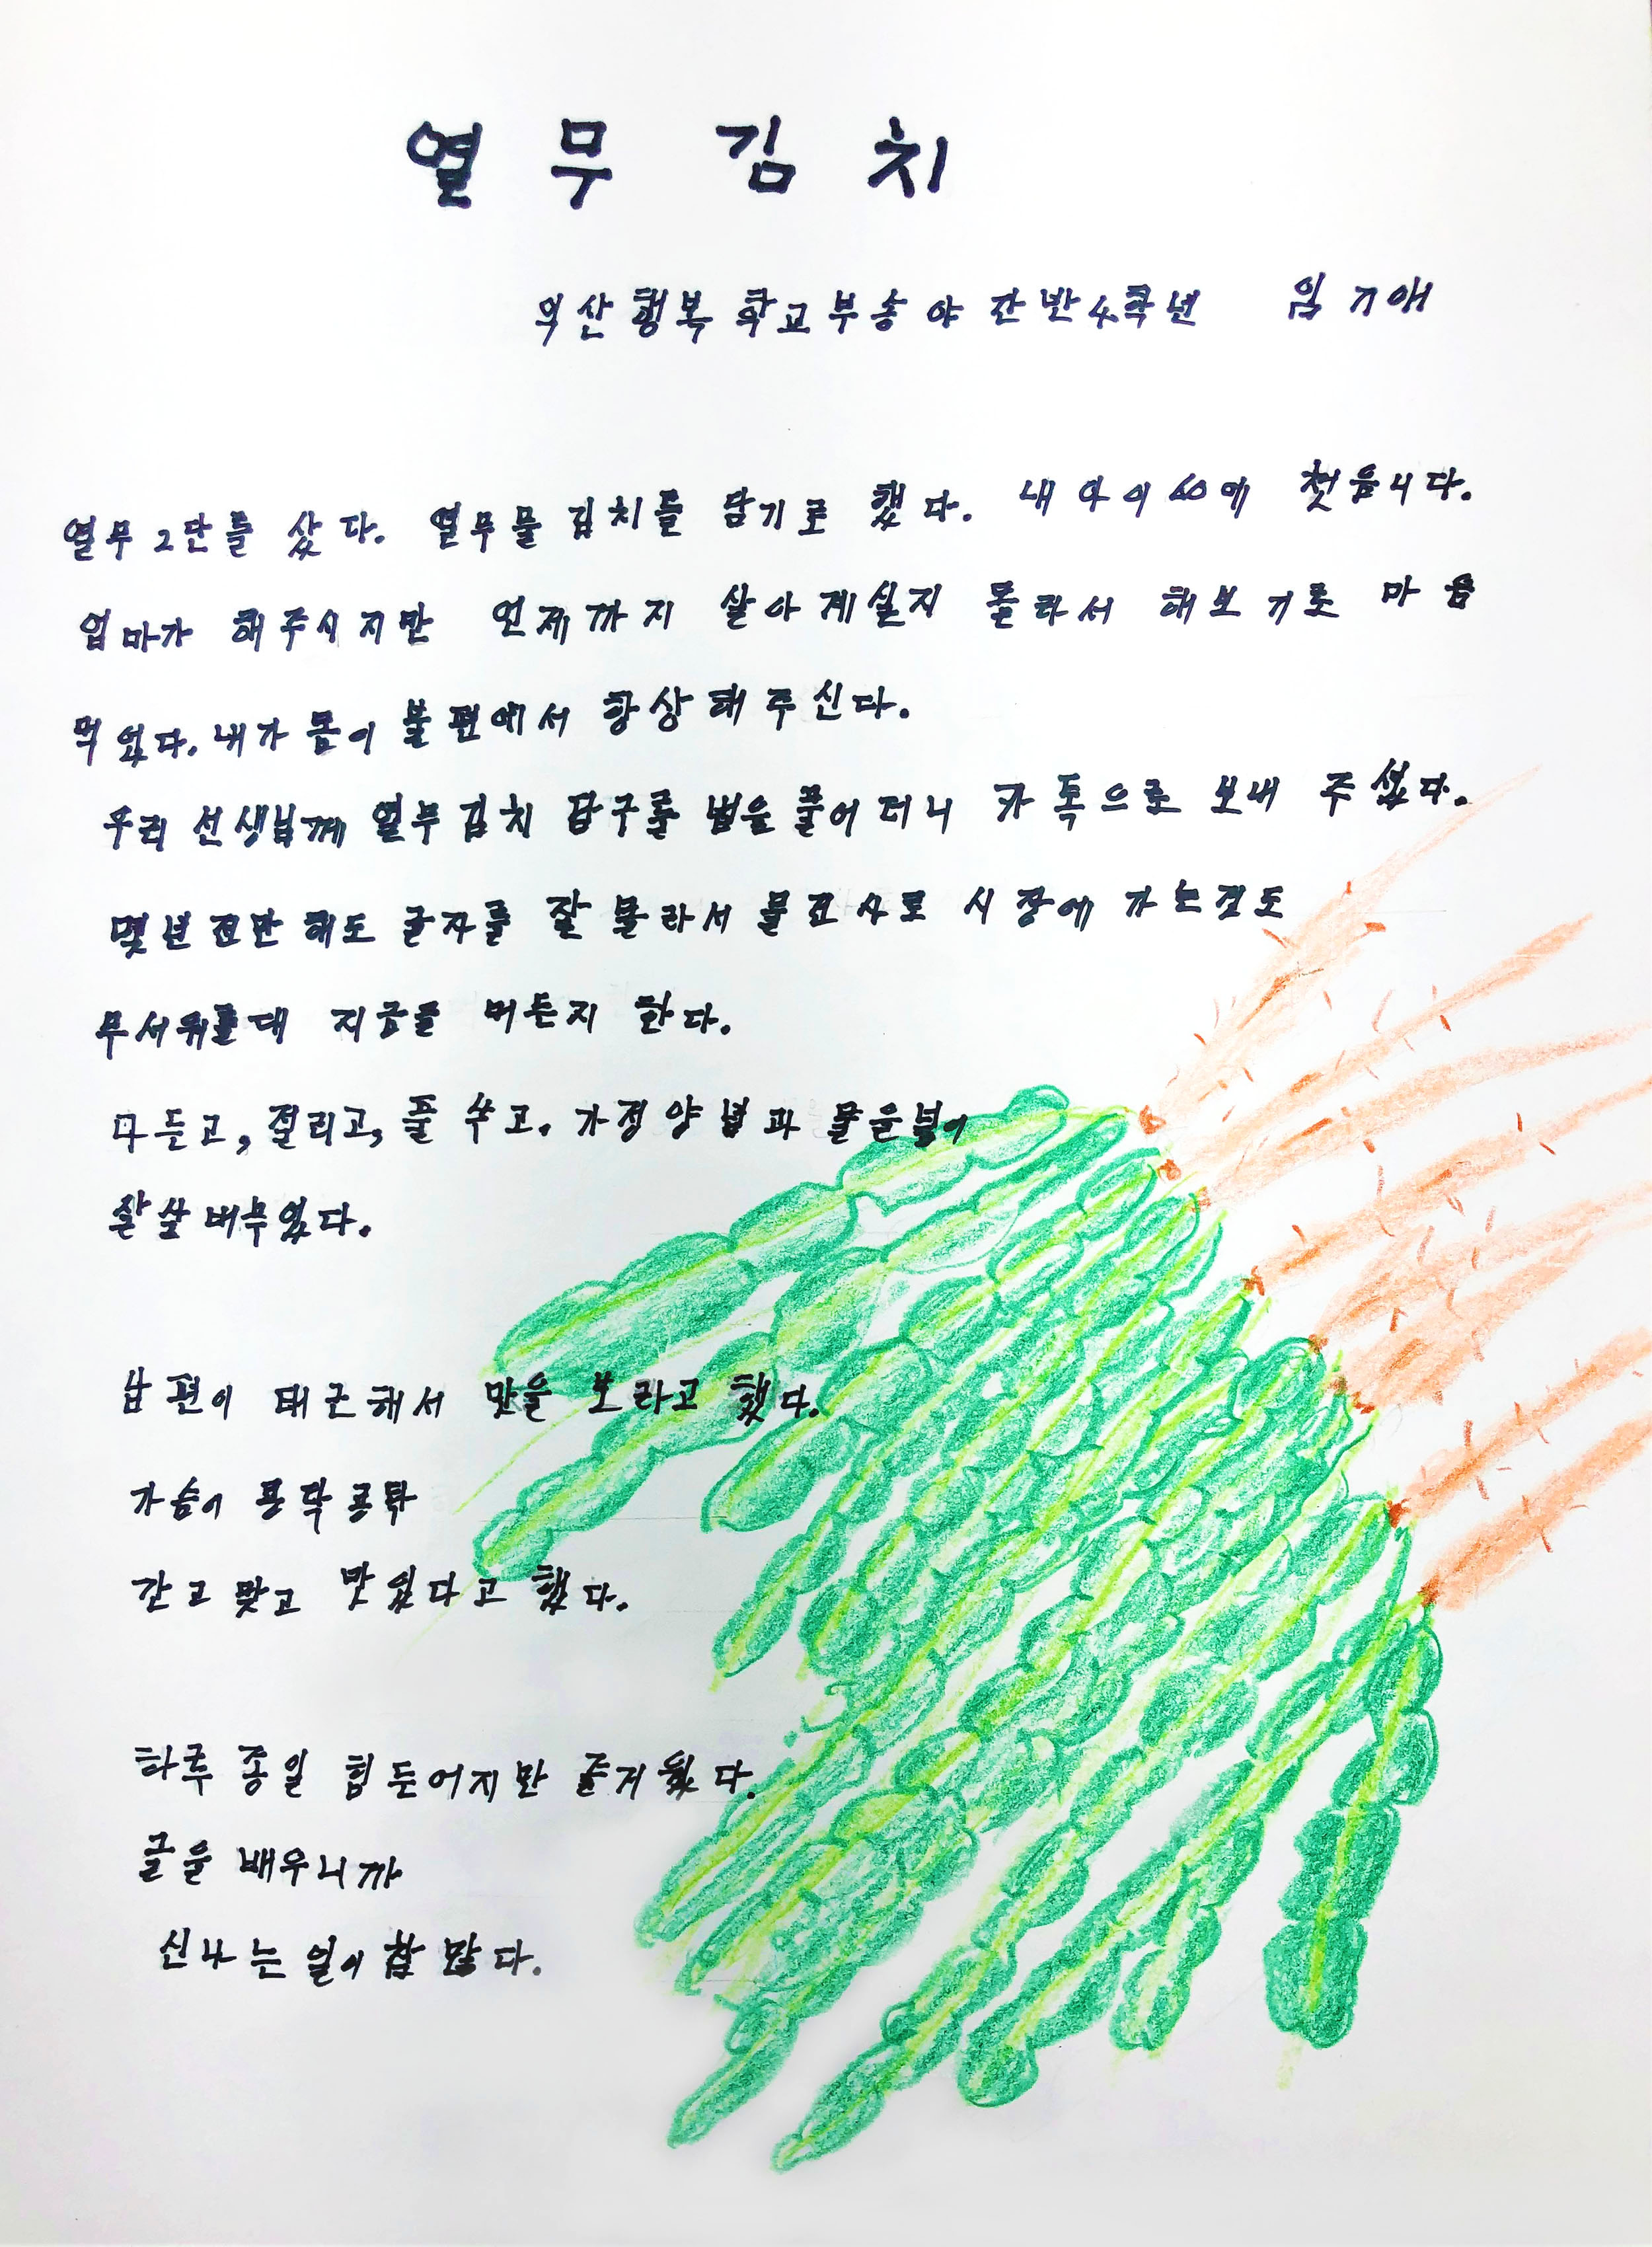 열무김치
익산행복학교부송야간반4학년 임기애
열무2단를 샀다. 열무물김치를 담기로 했다. 내 나이 60에 첫음니다.
엄마가 해주시지만 언제까지 살아계실지 몰라서 해보기로 마음
먹었다. 내가 몸이 불편에서 항상 해주신다.
우리 선생님께 열무김치 담구를 법을 물어더니 카톡으로 보내 주셨다.
몇년전만 해도 글자를 잘 몰라서 물건사로 시장에 가는것도
무서워를대 지금를 머든지 한다.
다든고, 절리고, 풀 쑤고. 가정양념과 물을널이
살살 버무였다.
남편이 태근해서 맛을 보라고 했다.
가슴이 콩닥콩닥
간고 맞고 맛있다고 했다.
하루 종일 힘든어지만 즐거웠다.
글을 배우니까
신나는 일이 참 많다.